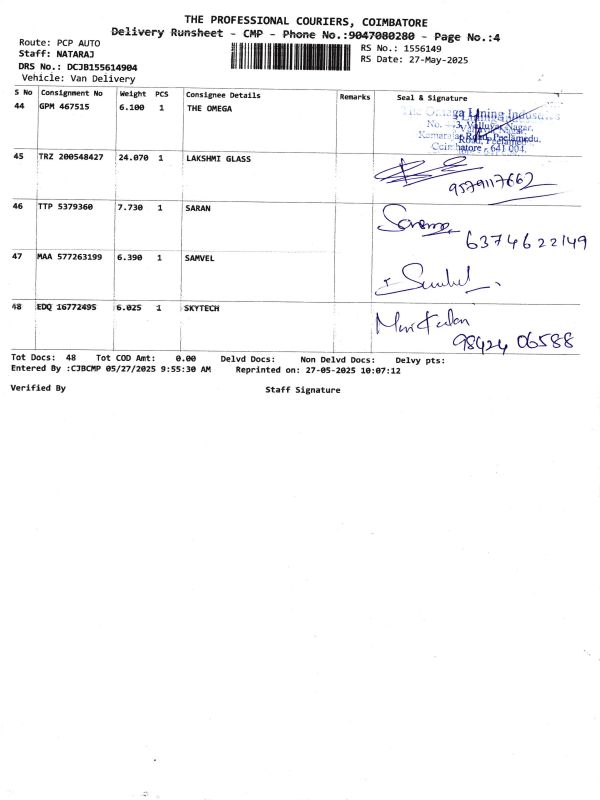 THE PROFESSIONAL COURIERS, COIMBATORE
Delivery Runsheet - CMP - Phone No.:9047080280 - Page No.:4
Route: PCP AUTO
Staff: NATARAJ
DRS No.: DCJB155614904
Vehicle: Van Delivery
RS No.: 1556149
RS Date: 27-May-2025
S No Consignment No Weight PCS Consignee Details Remarks Seal & Signature
44 GPM 467515 6.100 1 THE OMEGA
The Omega Lining Industries
Valluvar Nagar,
Kamarajar Road, Peelamedu,
Coimbatore - 641 004.
45 TRZ 200548427 24.070 1 LAKSHMI GLASS
9579117662
46 TTP 5379360 7.730 1 SARAN
6374622149
47 MAA 577263199 6.390 1 SAMVEL
48 EDQ 16772495 6.025 1 SKYTECH
98424 06588
Tot Docs: 48 Tot COD Amt: 0.00 Delvd Docs: Non Delvd Docs: Delvy pts:
Entered By :CJBCMP 05/27/2025 9:55:30 AM Reprinted on: 27-05-2025 10:07:12
Verified By Staff Signature